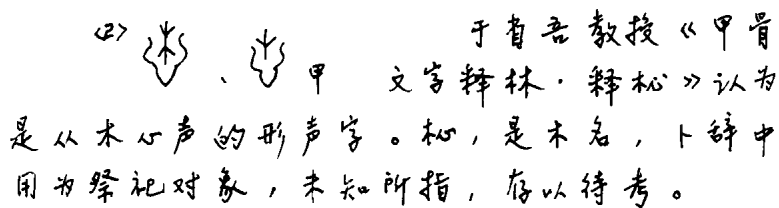 <2> 、 甲 于省吾教授《甲骨
文字释林·释杺》认为
是从木心声的形声字。杺，是木名，卜辞中
用为祭祀对象，未知所指，存以待考。